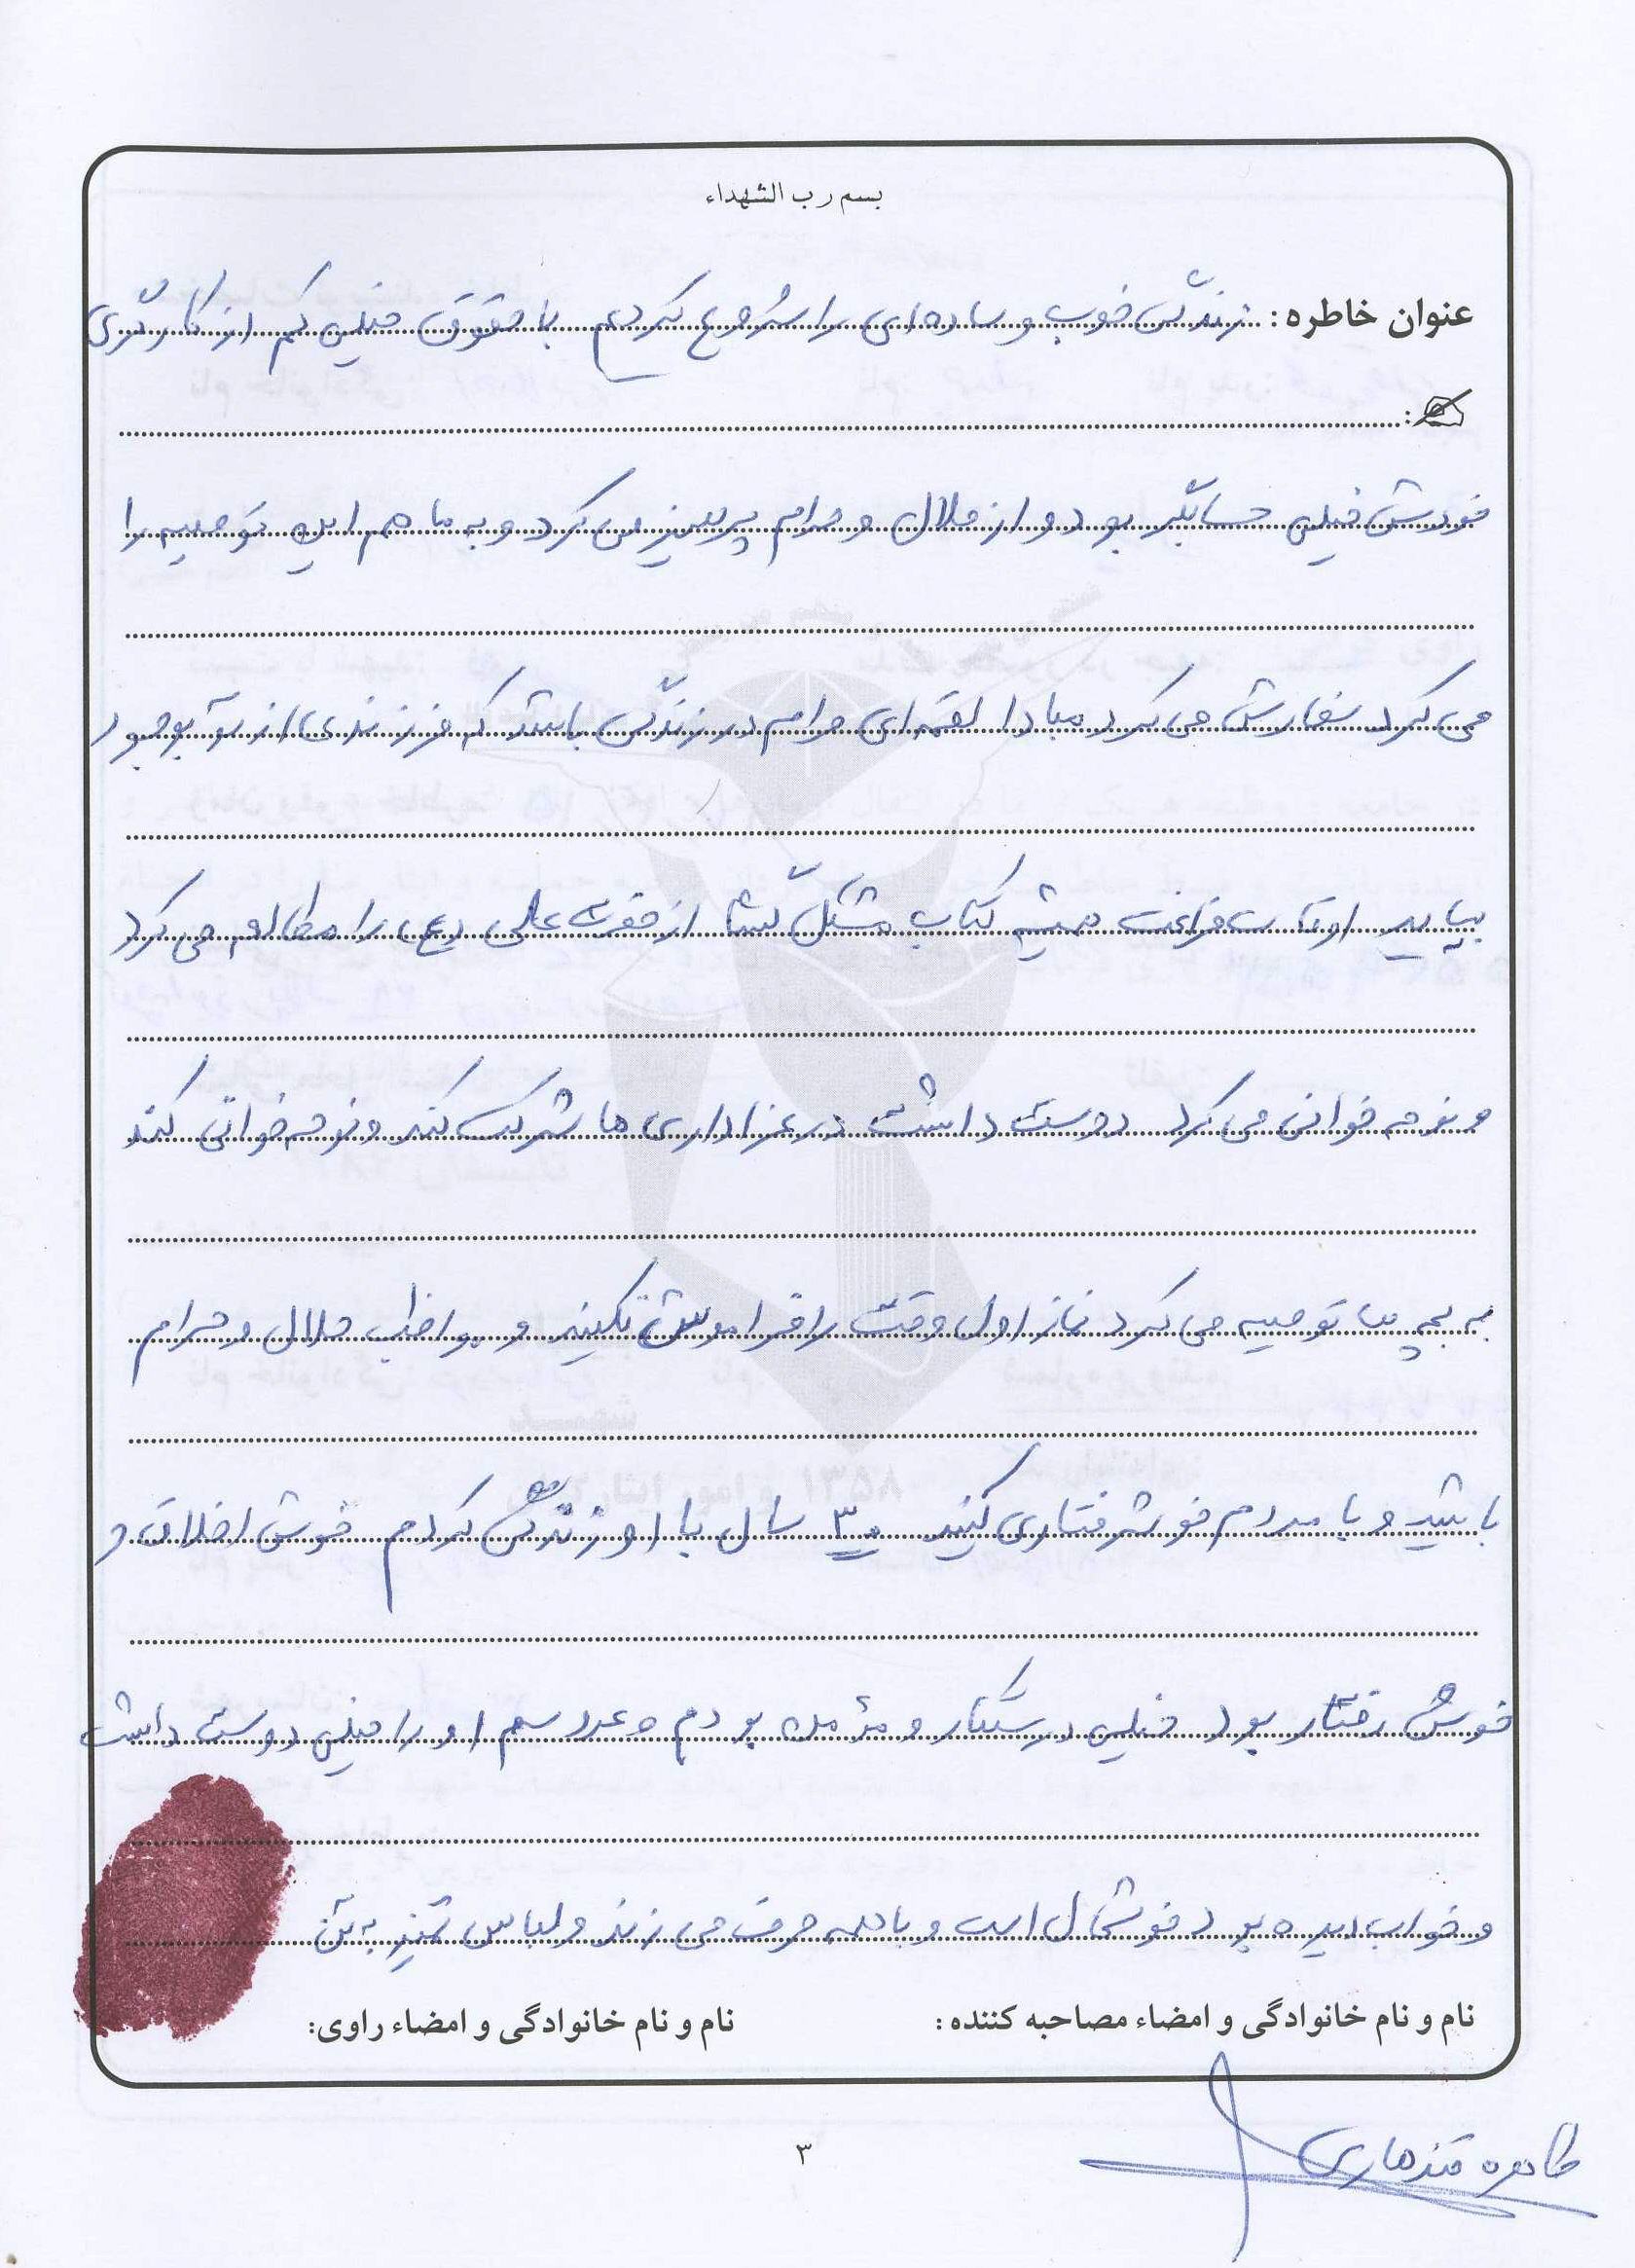 بسم رب الشهداء
عنوان خاطره: زندگی خوب و ساده‌ای را شروع کردیم با حقوق خیلی کم از کارگری
خودش خیلی حسابگر بود و از حلال و حرام پرهیز می کرد و به ما هم این توصیه را
می کرد سفارش می کرد مبادا لقمه‌ای حرام در زندگی باشد که فرزندی از تو بوجود
بیاید اوقات فراغت همیشه کتاب مشکل گشا از حضرت علی (ع) را مطالعه می کرد
و نوحه خوانی می کرد دوست داشت در عزاداری ها شرکت کند و نوحه خوانی کند
به بچه ها توصیه می کرد نماز اول وقت را فراموش نکنید و مواظب حلال و حرام
باشید و با مردم خوشرفتاری کنید ۳۰ سال با او زندگی کردم خوش اخلاق و
خوش رفتار بود خیلی درستکار و مؤمن بودم او را خیلی دوست داشت
و خواب دیده بود خوشحال است و با همه حرف می زند و لباس تمیز به تن
نام و نام خانوادگی و امضاء مصاحبه کننده :
نام و نام خانوادگی و امضاء راوی:
طاهره قندهاری
۳